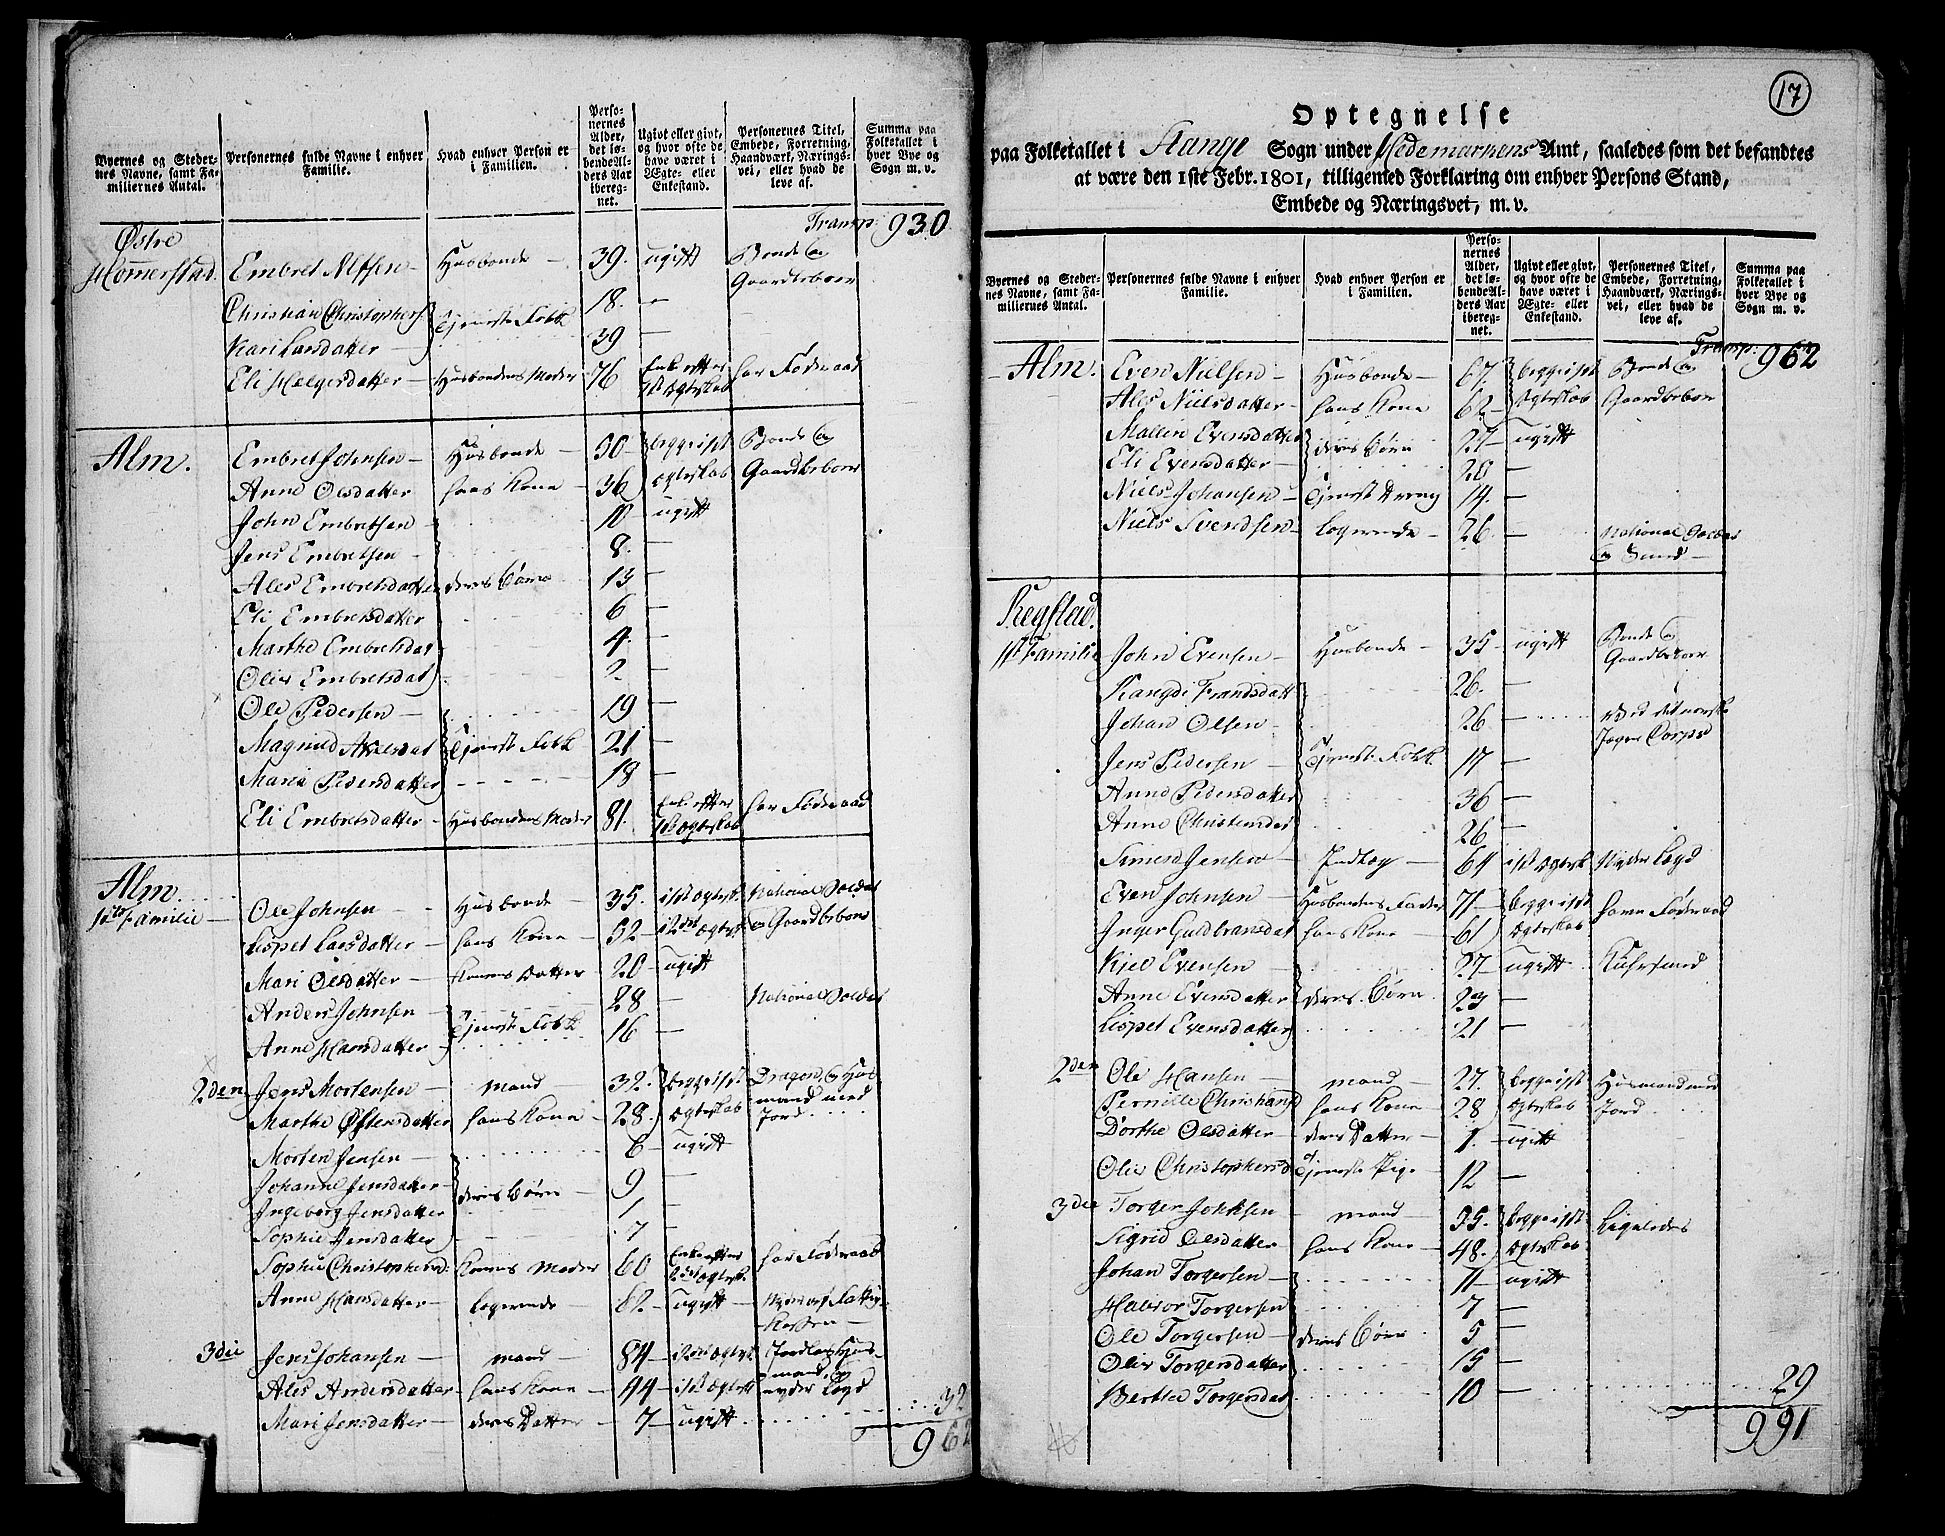 Byernes og Steder-
nes Navne, samt Fa-
miliernes Antal.
Personernes fulde Navne i enhver
Familie.
Hvad enhver Person er
i Familien.
Perso-
nernes
Alder,
det lø-
bende Al-
ders Aar
iberegnet.
Ugivt eller givt,
og hvor ofte de
have været i
Ægte- eller
Enkestand.
Personernes Titel,
Embede, Forretning,
Haandværk, Nærings-
vei, eller hvad de
leve af.
Summa paa
Folketallet i
hver Bye og
Sogn m. v.
Transp: 930
Østre
Hommerstad. Embret Alfsen Husbonde 39. ugift Bonde og
Gaardbeboer
Christian Christophers. 18. —
Tjeneste Folk
Kari Larsdatter 39 —
Eli Helgesdatter Husbondens Moder 76 Enke efter har Føderaad
1ste Ægteskab
Alm. Embret Johnsen Husbonde 30 begge i 1ste Bonde og
Anne Olsdatter hans Kone 36 Ægteskab Gaardbeboer
John Embretsen 10 ugift
Jens Embretsen 8. —
Ales Embretsdatter deres Børn 13 —
Eli Embretsdatter 6 —
Marthe Embretsdat 4. —
Olir Embretsdat 2 —
Ole Pedersen 19 —
Magnild Axelsdat Tjeneste Folk 21 —
Maria Pedersdatter 18 —
Eli Embretsdatter Husbondens Moder 81. Enke efter har Føderaad
1ste Ægteskab
Alm.
1ste Familie Ole Johnsen Husbonde 35. i 1ste Ægtesk. National Soldat
Lispet Larsdatter hans Kone 52 i 2det Ægtesk og Gaardbeboer
Mari Olsdatter Konens Datter 20 ugift
Anders Johnsen 28 — National Soldat
Tjeneste Folk
Anne Hansdatter 16 —
2den Jens Mortensen mand 32. begge i 1ste Dragon, og Hus-
mand med
Marthe Østensdatter hans Kone 28. Ægteskab Jord
Morten Jensen 6 ugift
Johanne Jensdatter 9 —
deres Børn
Ingeborg Jensdatter 1 —
Sophie Jensdatter 7 —
Sophie Christophersd: Konens Moder 60 Enke efter har Føderaad
2det Ægtesk.
Anne Hansdatter Logerende 62 ugift Nyder af Fattig-
Kassen
3die Jens Johansen mand 84 i 2det Ægtesk Jordløs Hus-
mand, og
Ales Andersdatter hans Kone 44 i 1ste Ægtesk nyder Lægd
Mari Jensdatter deres Datter 7 ugift 32
962
17
Optegnelse
paa Folketallet i Stange Sogn under Hedemarkens Amt, saaledes som det befandtes
at være den 1ste Febr. 1801, tilligemed Forklaring om enhver Persons Stand,
Embede og Næringsvei, m. v.
Byernes og Steder-
nes Navne, samt Fa-
miliernes Antal.
Personernes fulde Navne i enhver
Familie.
Hvad enhver Person er
i Familien.
Perso-
nernes
Alder,
det lø-
bende Al-
ders Aar
iberegnet.
Ugivt eller givt,
og hvor ofte de
have været i
Ægte- eller
Enkestand.
Personernes Titel,
Embede, Forretning,
Haandværk, Nærings-
vei, eller hvad de
leve af.
Summa paa
Folketallet i
hver Bye og
Sogn m. v.
Transp: 962
Alm. Even Nielsen Husbonde 67. begge i 1ste Bonde og
Ales Nielsdatter hans Kone 62 Ægteskab Gaardbeboer
Mallin Evensdatter 27 ugift
deres Børn
Eli Evensdatter 20 —
Niels Johansen Tjeneste Dreng 14. —
Niels Svendsen Logerende 26. — National Soldat
og Smed
Regstad.
1ste Familie John Evensen Husbonde 35 ugift Bonde og
Gaardbeboer
Rangdi Frandsdatt 26. —
Johan Olsen 26 — ved det norske
Jæger Corps
Jens Pedersen Tjeneste Folk 17 —
Anne Pedersdatter 36 —
Anne Christensdat 26 —
Simen Jensen Indlæg 64 i 1st Ægtesk Nyder Lægd
Even Johnsen Husbondens Fader 71 begge i 1ste have Føderaad
Inger Guldbransdat hans Kone 61 Ægteskab
Kjel Evensen 27 ugift
Anne Evensdatter deres Børn 23 —
Lispet Evensdatter 21 —
2den Ole Hansen mand 27. begge i 1ste Husmand med
Pernille Christiansd hans Kone 28 Ægteskab Jord
Dorthe Olsdatter deres Datter 1. ugift
Olir Christophersd Tjeneste Pige 12 —
3die Torger Johnsen mand 35. begge i 1ste Ligeledes
Sigrid Olsdatter hans Kone 48. Ægteskab
Johan Torgersen 11 ugift
Halvor Torgersen 7 —
Ole Torgersen deres Børn 5 —
Olir Torgersdatter 15 —
Berthe Torgersdat 10 — 29
991